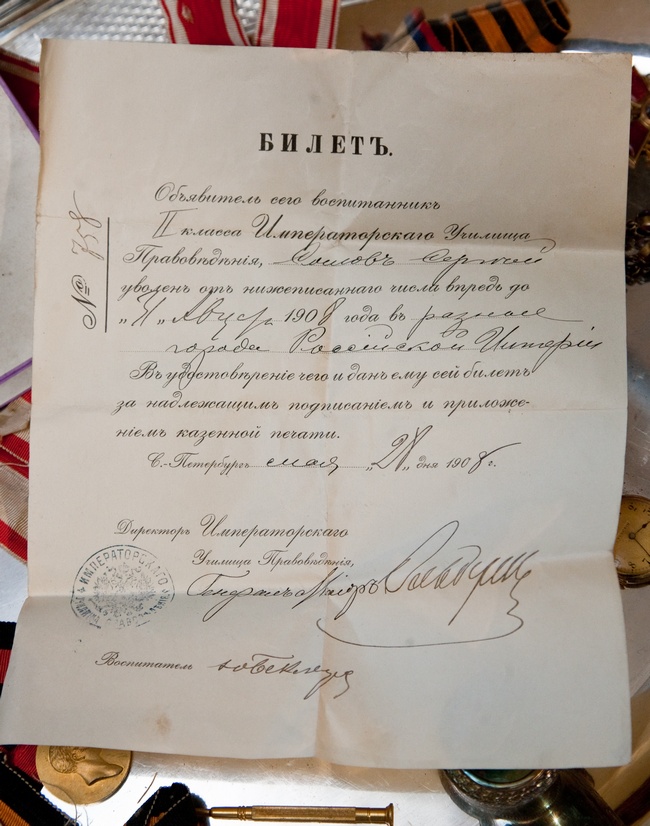 БИЛЕТЪ.
№ 758
Объявитель сего воспитанникъ
II класса Императорскаго Училища
Правовѣдѣнія, Сомовъ Сергей
уволенъ отъ нижеписаннаго числа впредь до
„31„ Август 1908 года въ разные
города Россійской Имперіи
Въ удостовѣреніе чего и данъ ему сей билетъ
за надлежащимъ подписаніемъ и приложе-
ніемъ казенной печати.
С.-Петербургъ мая „28„ дня 1908 г.
Директоръ Императорскаго
Училища Правовѣдѣнія,
Генералъ Маіоръ
ИМПЕРАТОРСКАГО
Воспитатель